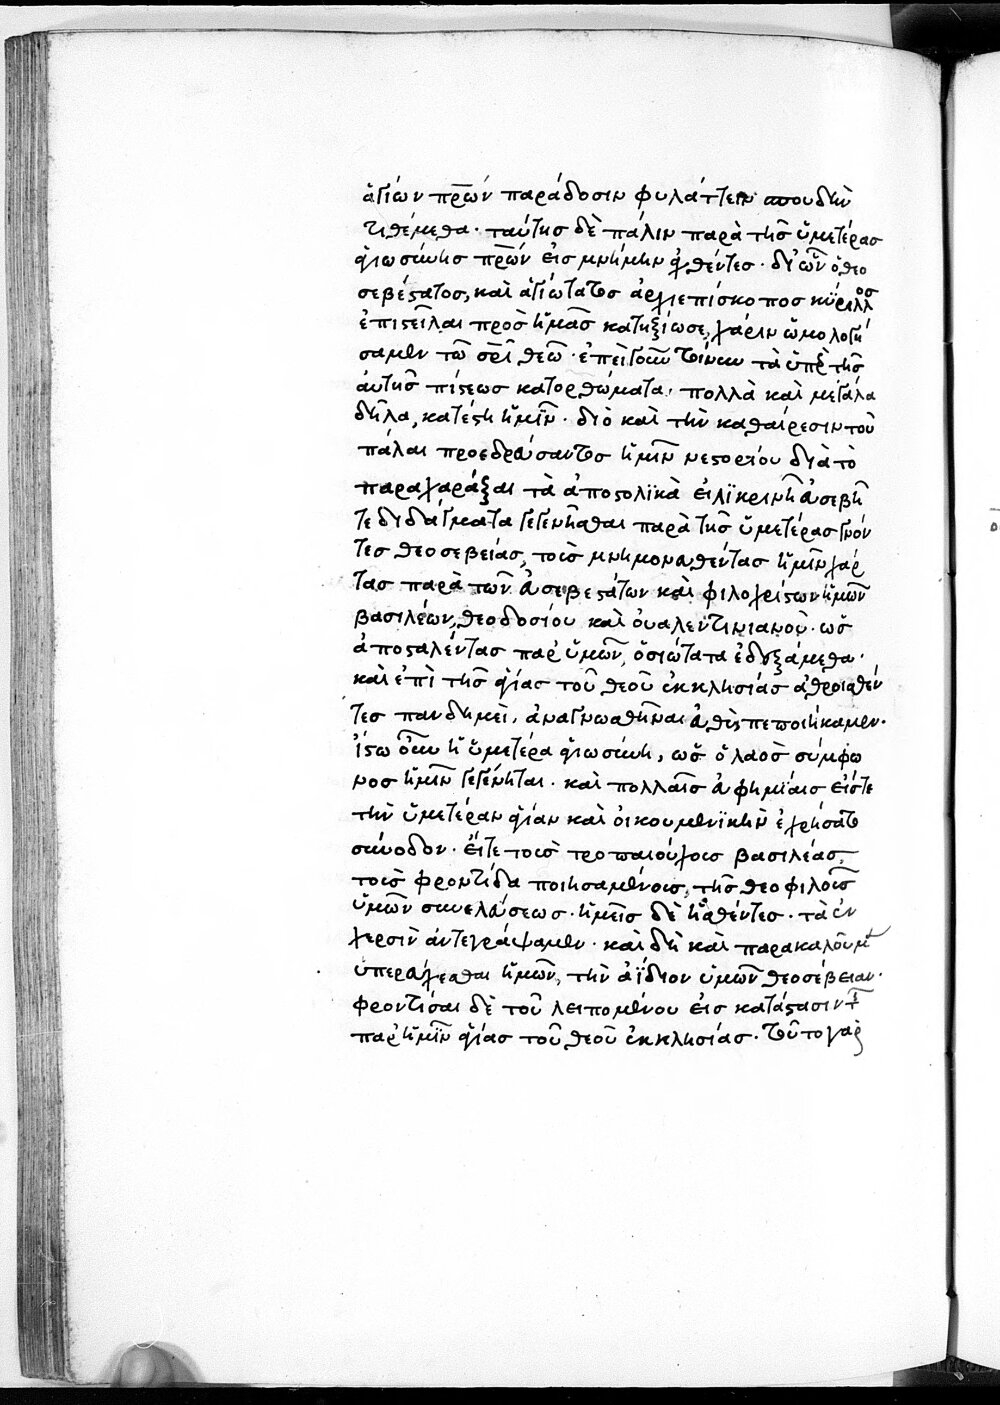 ἁγίων πρων παράδοσιν φυλάττειν σπουδὴν
τιθέμεθα· ταύτης δὲ πάλιν παρὰ τῆς ὑμετέρας
ἁγιωσύνης πρων εἰς μνήμην ἀχθέντες· δι' ὧν ὁ θεο
σεβέστατος, καὶ ἁγιώτατος ἀρχιεπίσκοπος κύριλλος
ἐπιστεῖλαι πρὸς ἡμᾶς κατηξίωσε, χάριν ὡμολογή
σαμεν τῶ σρι θεῶ· ἐπεὶ γοῦν τοίνυν τὰ ὑπὲρ τῆς
αὐτῆς πίστεως κατορθώματα, πολλὰ καὶ μεγάλα
δῆλα, κατέστη ἡμῖν· διὸ καὶ τὴν καθαίρεσιν τοῦ
πάλαι προεδρεύσαντος ἡμῖν νεστορίου διὰ τὸ
παραχαράξαι τὰ ἀποστολϊκὰ εἰλϊκρινῆ εὐσεβῆ
τε διδάγματα γεγενῆσθαι παρὰ τῆς ὑμετέρας γνόν
τες θεοσεβείας, τοῖς μνημονευθέντας ἡμῖν χάρ
τας παρὰ τῶν εὐσεβεστάτων καὶ φιλοχρίστων ἡμῶν
βασιλέων, θεοδοσίου καὶ οὐαλεντινιανοῦ· ὡς
ἀποσταλέντας παρ' ὑμῶν, ὁσιώτατα ἐδεξάμεθα·
καὶ ἐπὶ τῆς ἁγίας τοῦ θεοῦ ἐκκλησίας ἀθροισθέν
τες πανδημεὶ, ἀναγνωσθῆναι εὐθὺς πεποιήκαμεν·
ἴστω οὖν ἡ ὑμετέρα ἁγιωσύνη, ὡς ὁ λαὸς σύμφω
νος ἡμῖν γεγένηται· καὶ πολλαῖς εὐφημίαις εἴς τε
τὴν ὑμετέραν ἁγίαν καὶ οἰκουμενϊκὴν ἐχρήσατο
σύνοδον· εἴτε τοῖς τροπαιούχοις βασιλέας,
τοῖς φροντίδα ποιησαμένοις, τῆς θεοφιλοῦς
ὑμῶν συνελεύσεως· ἡμεῖς δὲ ἡσθέντες· τὰ ἐν
χερσὶν ἀντεγράψαμεν· καὶ δὴ καὶ παρακαλοῦμεν
ὑπερεύχεσθαι ἡμῶν, τὴν ἀΐδιον ὑμῶν θεοσέβειαν·
φροντίσαι δὲ τοῦ λειπομένου εἰς κατάστασιν τῆς
παρ' ἡμῖν ἁγίας τοῦ θεοῦ ἐκκλησίας· τοῦτο γὰρ